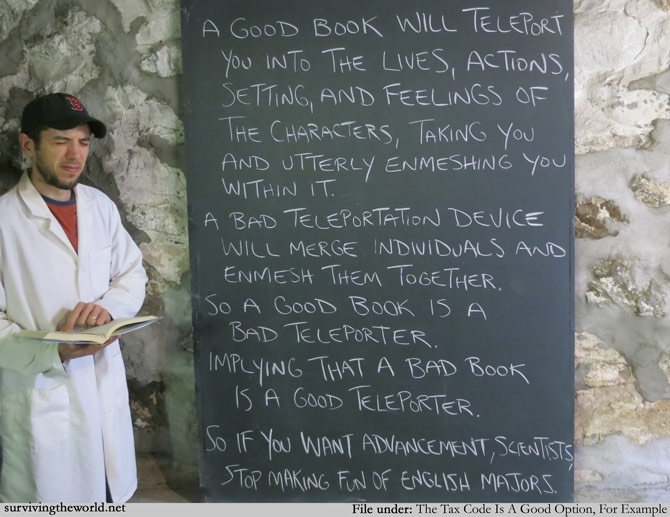 A GOOD BOOK WILL TELEPORT
YOU INTO THE LIVES, ACTIONS,
SETTING, AND FEELINGS OF
THE CHARACTERS, TAKING YOU
AND UTTERLY ENMESHING YOU
WITHIN IT.
A BAD TELEPORTATION DEVICE
WILL MERGE INDIVIDUALS AND
ENMESH THEM TOGETHER.
SO A GOOD BOOK IS A
BAD TELEPORTER.
IMPLYING THAT A BAD BOOK
IS A GOOD TELEPORTER.
SO IF YOU WANT ADVANCEMENT, SCIENTISTS,
STOP MAKING FUN OF ENGLISH MAJORS.
survivingtheworld.net
File under: The Tax Code Is A Good Option, For Example